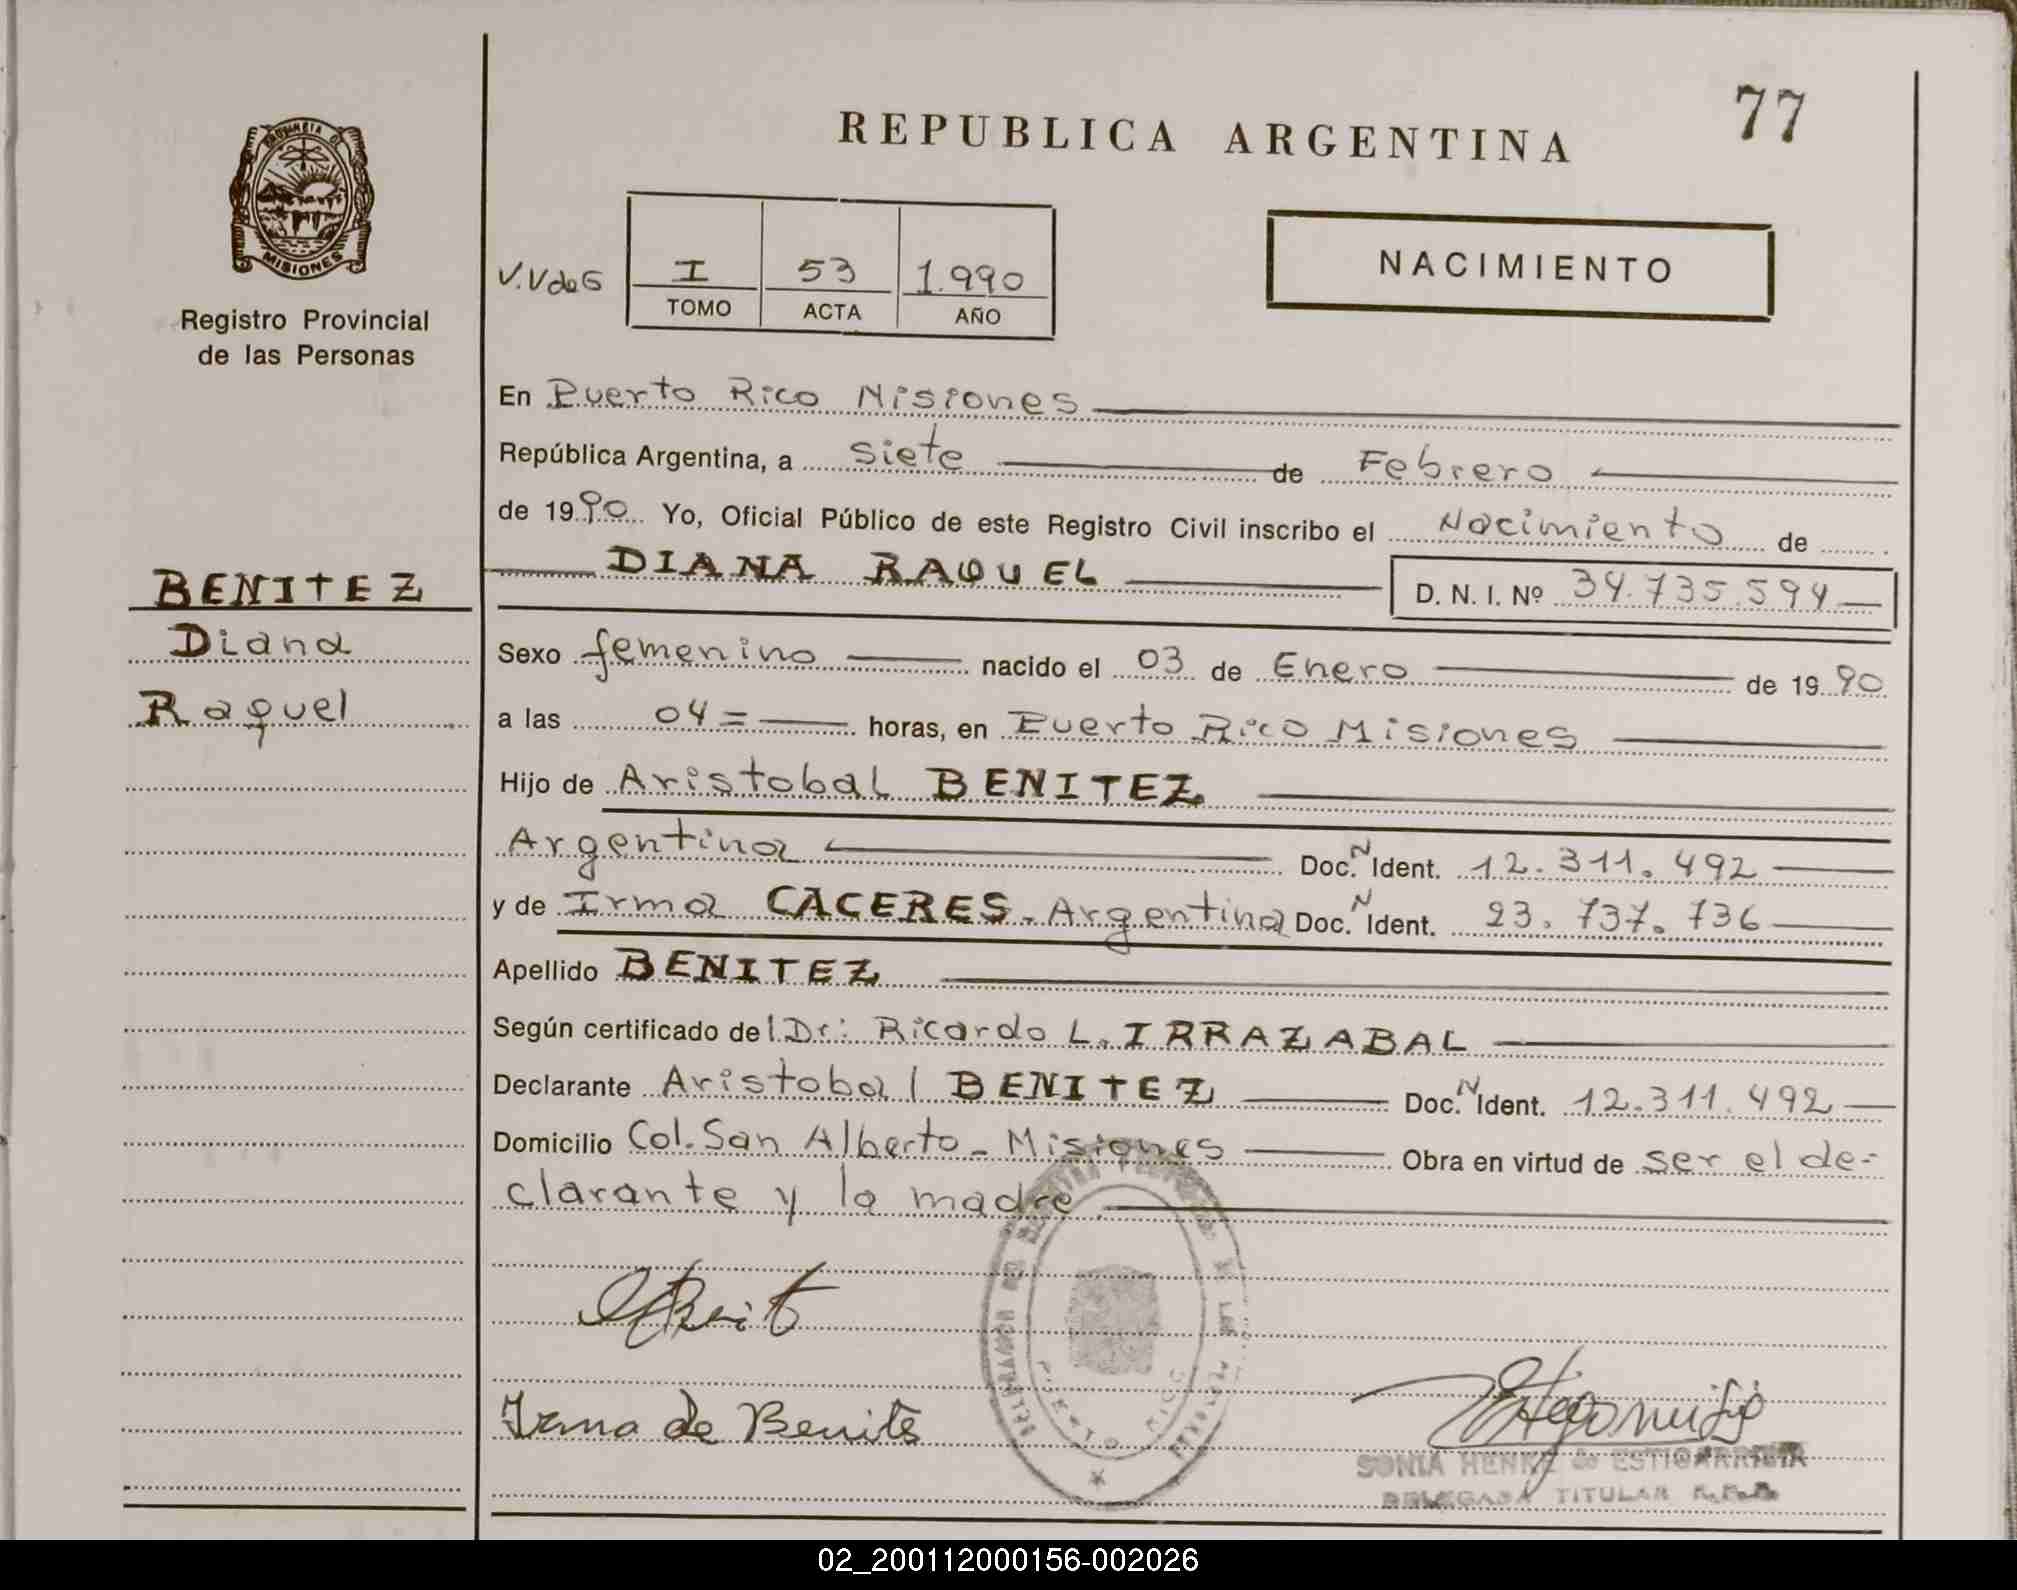 77
REPUBLICA ARGENTINA
PROVINCIA DE
MISIONES
Registro Provincial
de las Personas
V.VdeG
I 53 1.990
TOMO ACTA AÑO
NACIMIENTO
En Puerto Rico Misiones
República Argentina, a siete de Febrero
de 1990 Yo, Oficial Público de este Registro Civil inscribo el Nacimiento de
DIANA RAQUEL
D. N. I. Nº 34.735.594
BENITEZ
Diana
Raquel
Sexo femenino nacido el 03 de Enero de 1990
a las 04= horas, en Puerto Rico Misiones
Hijo de Aristobal BENITEZ
Argentina Doc.N Ident. 12.311.492
y de Irma CACERES-Argentina Doc.N Ident. 23.737.736
Apellido BENITEZ
Según certificado del Dr: Ricardo L. IRRAZABAL
Declarante Aristobal BENITEZ Doc.N Ident. 12.311.492
Domicilio Col. San Alberto - Misiones Obra en virtud de ser el de-
clarante y la madre
PUERTO RICO
Irma de Benites
SONIA HENKE de ESTIGARRIBIA
DELEGADA TITULAR
02_200112000156-002026